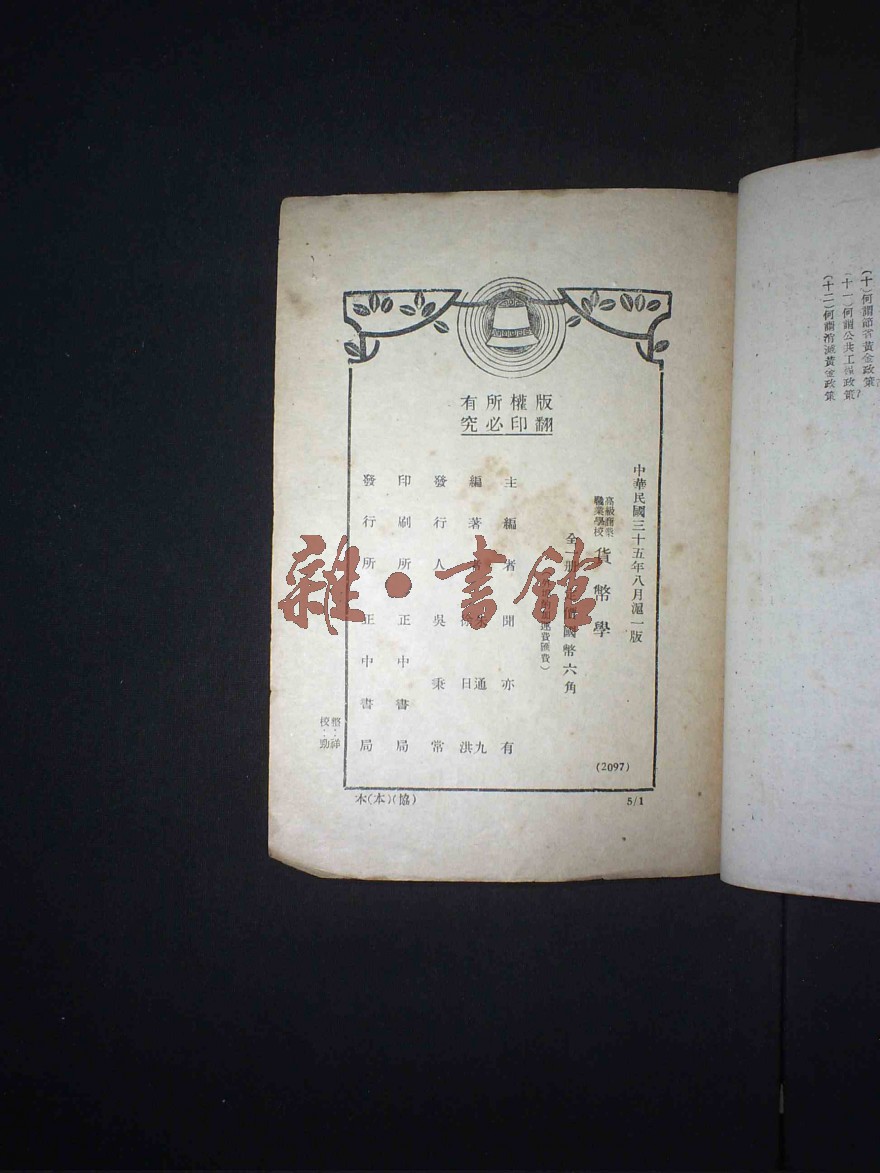 (十)何謂節省黃金政策
(十一)何謂公共工程政策?
(十二)何謂消滅黃金政策
版權所有
翻印必究
中華民國三十五年八月滬一版
高級商業
職業學校
貨幣學
全一冊 價國幣六角
運費匯費)
(2097)
主編者 聞亦有
編著者 朱通九
徐日洪
發行人 吳秉常
印刷所 正中書局
發行所 正中書局
校:勁
本(本)(協)
5/1
雜·書館